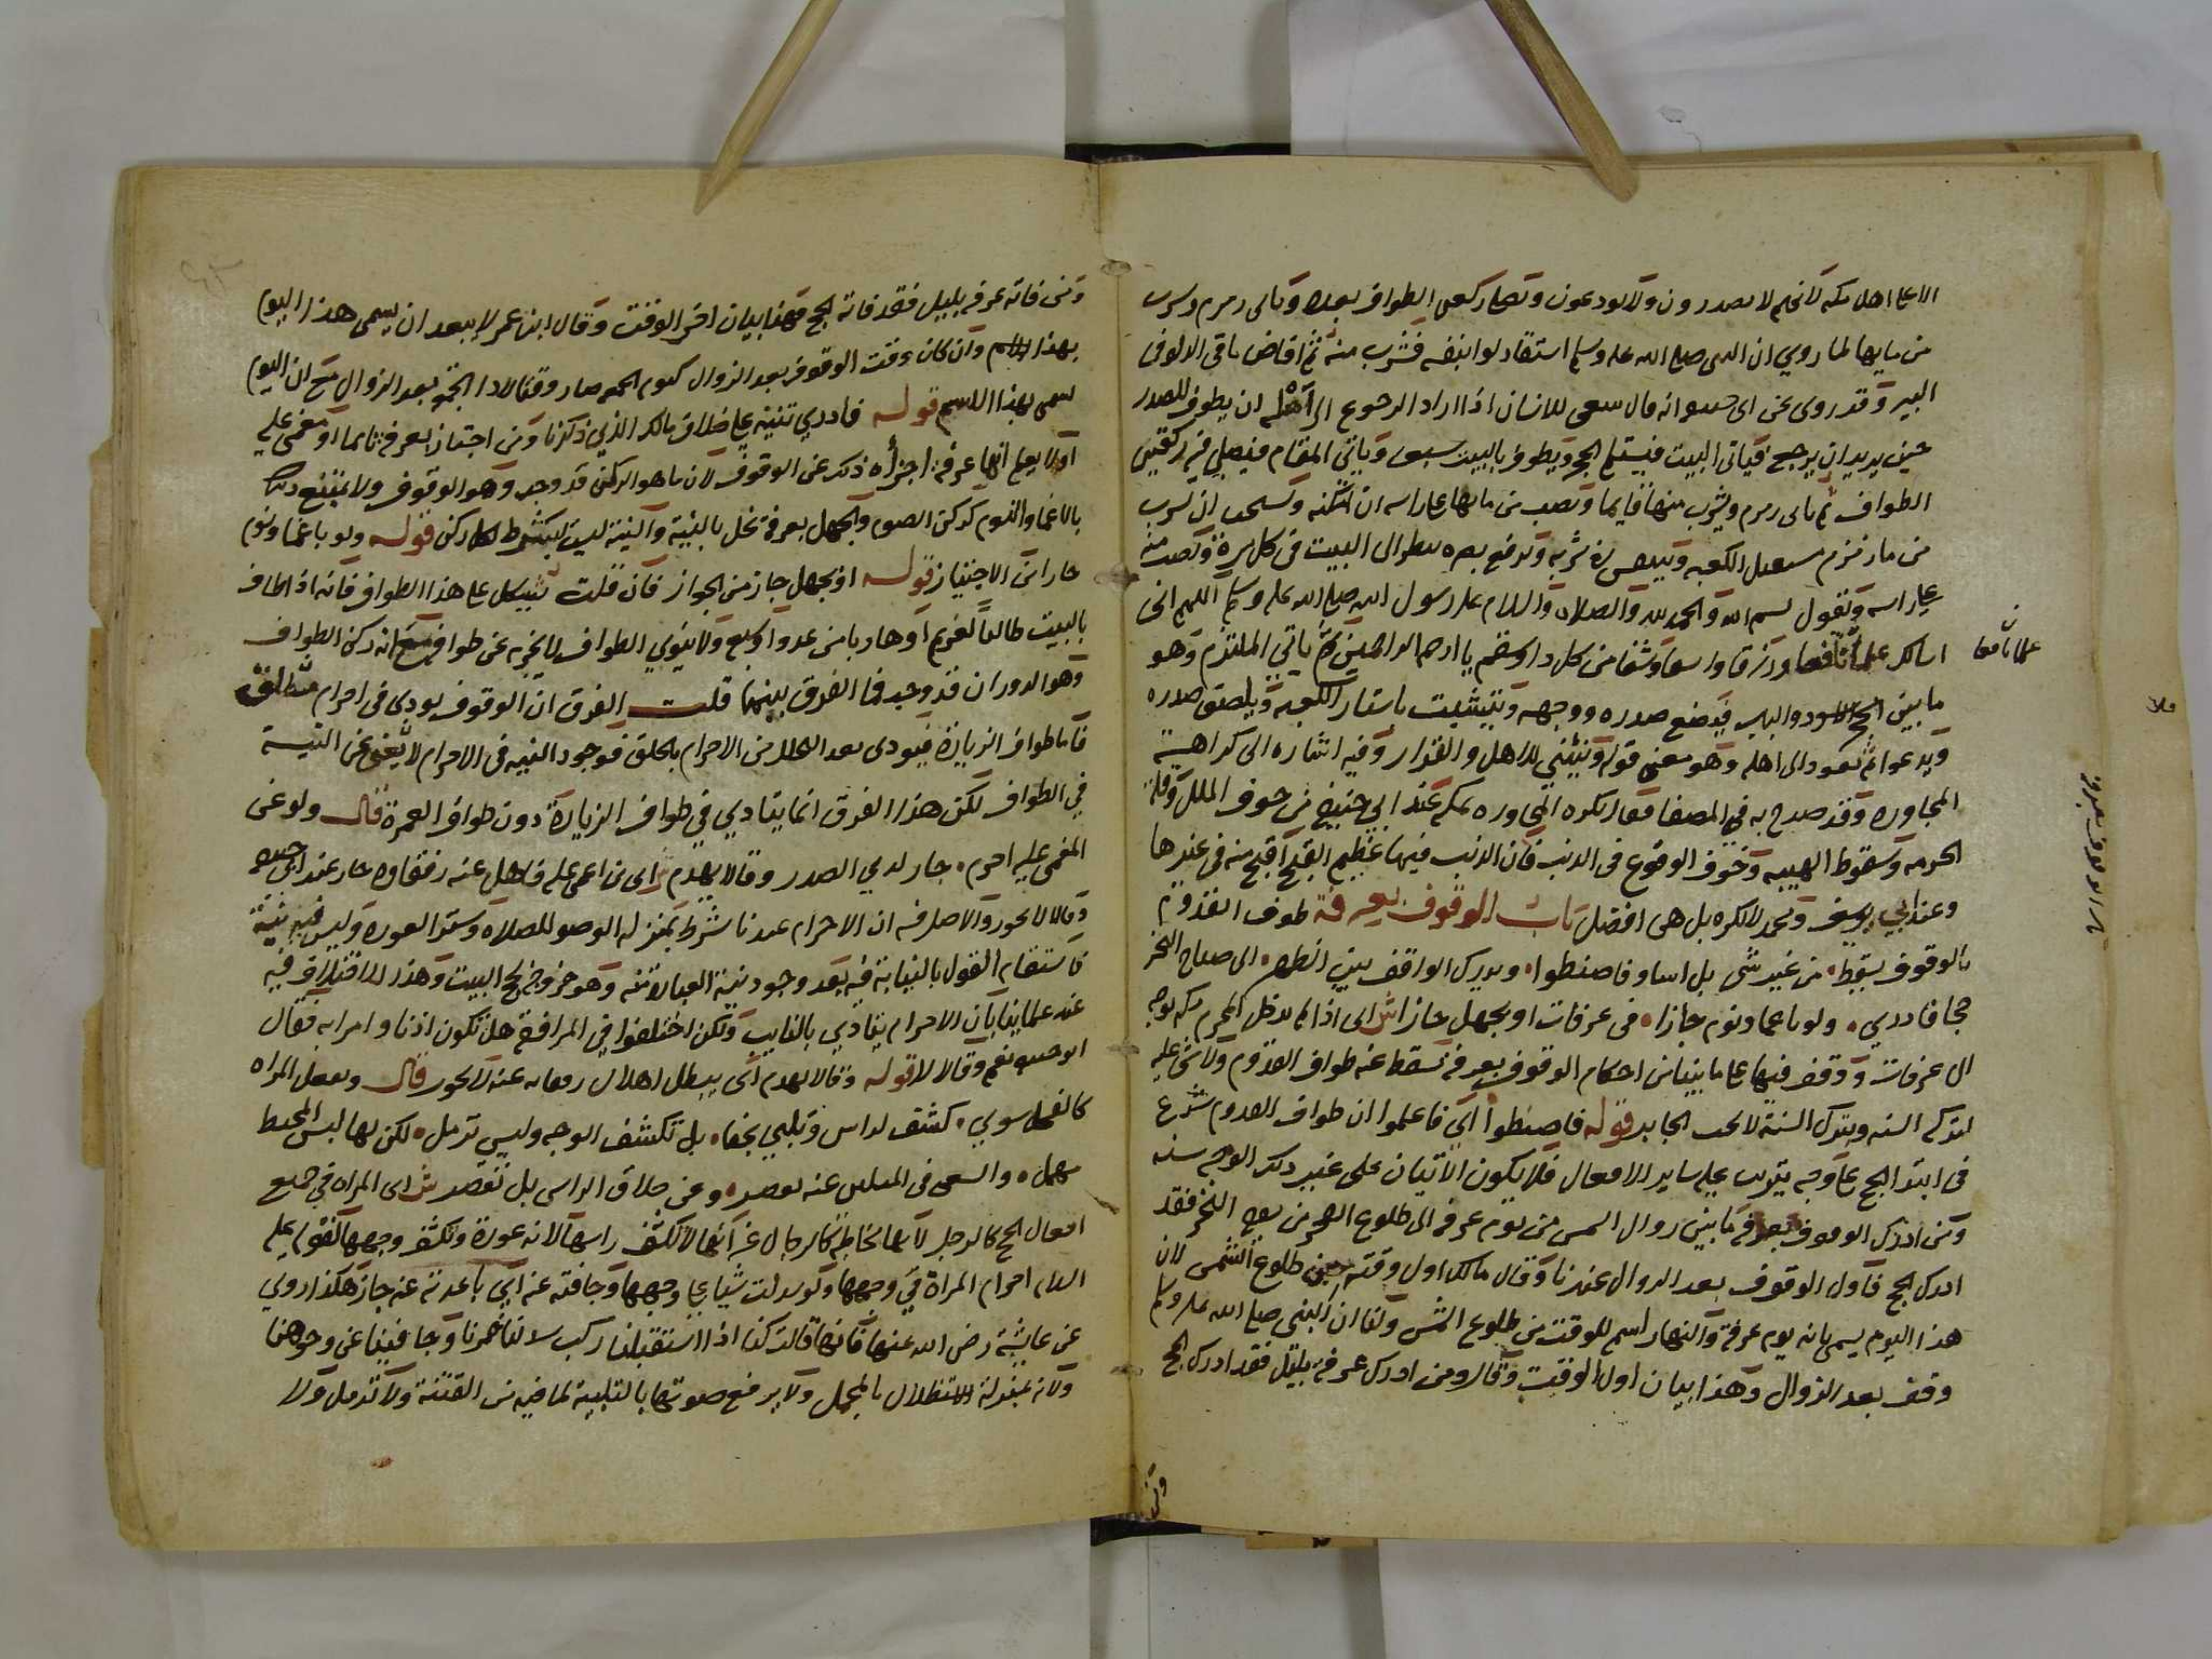 الا على اهل مكه لانهم لا يصدرون ولا يودعون وتصلى ركعتى الطواف بعده وياتى زمزم وشرب
من مايها لما روي ان النبى صلى الله عليه وسلم استقا دلوا بنفسه فشرب منه ثم افاض باقى الدلو فى
البير وقد روى عن ابى حنيفه انه قال ينبغى للانسان اذا اراد الرجوع الى اهله ان يطوف للصدر
حين يريد ان يرجع فياتى البيت فيستلم الحجر ويطوف بالبيت سبعا وياتي المقام فيصلي فيه ركعتين
الطواف ثم ياتى زمزم ويشرب منها قايما ويصب من مايها على راسه ان امكنه ويستحب ان يشرب
من ما زمزم مستقبل الكعبه ويتنفس فى شربه ويرفع بصره ينظر الى البيت فى كل مرة ويصب منه
على راسه ويقول بسم الله والحمد لله والصلاه والسلام على رسول الله صلى الله عليه وسلم اللهم انى
اسالك علما نافعا ورزقا واسعا وشفا من كل دا وسقم يا ارحم الراحمين ثم ياتي الملتزم وهو
علما نافعا
ما بين الحجر الاسود والباب فيضع صدره ووجهه ويتشبث باستار الكعبه ويلصق صدره
ويدعوا ثم يعود الى اهله وهو معنى قوله وينثني للاهل والقرار وفيه اشاره الى كراهية
المجاوره وقد صرح به فى المصفا فقال يكره المجاوره بمكه عند ابي حنيفه من خوف الملل وقلة
الحرمه وسقوط الهيبه وخوف الوقوع فى الذنب فان الذنب فيها عظيم القبح اقبح منه فى غيرها
وعند ابي يوسف ومحمد لا يكره بل هى افضل باب الوقوف بعرفة طوف القدوم
بالوقوف يسقط من غير شى بل اسا وفاضبطوا ويدرك الواقف بين الظهر الى صباح النحر
حجا فادري ولو باغما ونوم جازا فى عرفات او بجهل جازا ش اى اذا لم يدخل المحرم مكه بوجه
الى عرفات ووقف فيها على ما بينا من احكام الوقوف بعرفة سقط عنه طواف القدوم ولا شى عليه
لتركه السنه وبترك السنة لا يجب الجابر قوله فاضبطوا اي فاعلموا ان طواف القدوم شرع
فى ابتدا الحج على وجه يترتب عليه ساير الافعال فلا يكون الاتيان على غير ذلك الوجه سنه
ومن ادرك الوقوف بعرفة ما بين زوال الشمس من يوم عرفه الى طلوع الفجر من يوم النحر فقد
ادرك الحج فاول الوقوف بعد الزوال عندنا وقال مالك اول وقته حين طلوع الشمس لان
هذا اليوم يسمى بانه يوم عرفة والنهار اسم للوقت من طلوع الشمس ولنا ان النبى صلى الله عليه وسلم
وقف بعد الزوال وهذا بيان اول الوقت وقال ومن ادرك عرفة بليل فقد ادرك الحج
ومن
ومن فاته عرفه بليل فقد فاته الحج فهذا بيان اخر الوقت وقال ابن عمر لا يبعد ان يسمى هذا اليوم
بهذا الاسم وان كان وقت الوقوف بعد الزوال كيوم الجمعه صار وقتا لاداء الجمعه بعد الزوال مع ان اليوم
يسمى بهذا الاسم قوله فادري تنبيه على خلاف مالك الذي ذكرنا ومن اجتاز بعرفة نايما او مغمى عليه
او لا يعلم انها عرفة اجزاه ذلك عن الوقوف لان ما هو الركن قد وجد وهو الوقوف ولا يمتنع ذلك
بالاغما والنوم كركن الصوم والجهل بعرفة يخل بالنية والنية ليست بشرط لكل ركن قوله ولو باغما ونوم
جازا من الاجتياز قوله او بجهل جاز من الجواز فان قلت يشكل على هذا الطواف فانه اذا طاف
بالبيت طالبا لغريم او هاربا من عدو او سبع ولا ينوي الطواف لا يجزيه عن طوافه مع انه ركن الطواف
وهو الدوران قد وجد فما الفرق بينهما قلت الفرق ان الوقوف يودى فى احرام مطلق
فاما طواف الزيارة فيودى بعد التحلل من الاحرام بالحلق فوجود النيه فى الاحرام لا يغني عن النية
في الطواف لكن هذا الفرق انما يتادي في طواف الزيارة دون طواف العمرة قال ولو عن
المغمى عليه احرم جاز لدي الصدر وقالا يهدم ش اى من اغمى عليه فاهل عنه رفقاوه جاز عند ابى حنيفه
وقالا لا يجوز والاصل فيه ان الاحرام عندنا شرط بمنزله الوضو للصلاه وستر العوره وليس فيه نية
فاستقام القول بالنيابة فيه بعد وجود نية العبادة منه وهو خروجه لحج البيت وهذا لا اختلاف فيه
عند علماينا بان الاحرام يتادي بالنايب ولكن اختلفوا في المرافقة هل تكون اذنا وامرا به فقال
ابو حنيفه نعم وقالا لا قوله وقالا يهدم اى يبطل اهلال رفقايه عنه لا يجوز قال وتفعل المراه
كالفحل سوي كشف لراس وتلبي بخفا بل تكشف الوجه وليس ترمل لكن لها لبس المخيط
يهمل والسعى فى الميلين عنه تعصر وعن حلاق الراس بل تقصر ش اى المراه في جميع
افعال الحج كالرجل لانها مخاطبة كالرجال غير انها لا تكشف راسها لانه عورة وتكشف وجهها لقوله عليه
السلام احرام المراة في وجهها ولو سدلت شيا على وجهها وجافته عنه اي باعدته عنه جاز هكذا روي
عن عايشة رضى الله عنها فانها قالت كنا اذا استقبلنا ركب سدلنا خمرنا وجافينا عن وجوهنا
ولانه بمنزلة الاستظلال بالمحمل ولا يرفع صوتها بالتلبية لما فيه من الفتنة ولا ترمل ولا